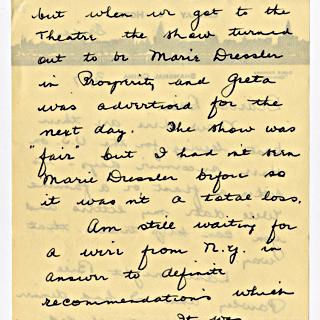 but when we got to the
Theatre the show turned
out to be Marie Dressler
in Prosperity and Greta
was advertised for the
next day. The show was
"fair" but I had n't seen
Marie Dressler before so
it was n't a total loss.
Am still waiting for
a wire from N.Y. in
answer to definite
recommendations which
It was